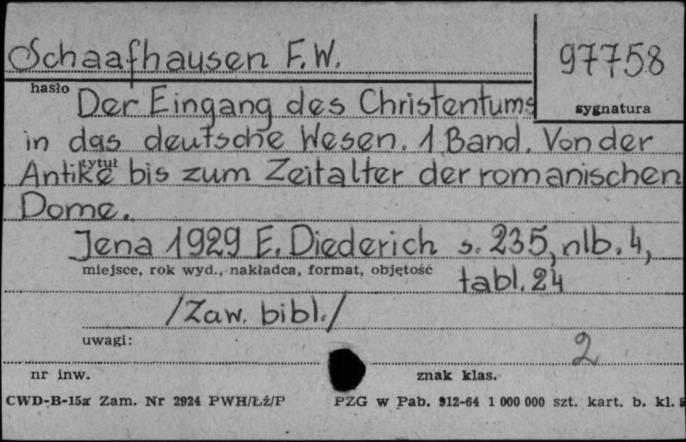 Schaafhausen F.W.
97758
hasło
sygnatura
Der Eingang des Christentums
in das deutsche Wesen. 1 Band. Von der
tytuł
Antike bis zum Zeitalter der romanischen
Dome.
Jena 1929 E. Diederich s. 235, nlb. 4,
miejsce, rok wyd., nakładca, format, objętość
tabl. 24
/Zaw. bibl./
uwagi:
2
nr inw.
znak klas.
CWD-B-15a Zam. Nr 2924 PWH/Łź/P
PZG w Pab. 912-64 1 000 000 szt. kart. b. kl.